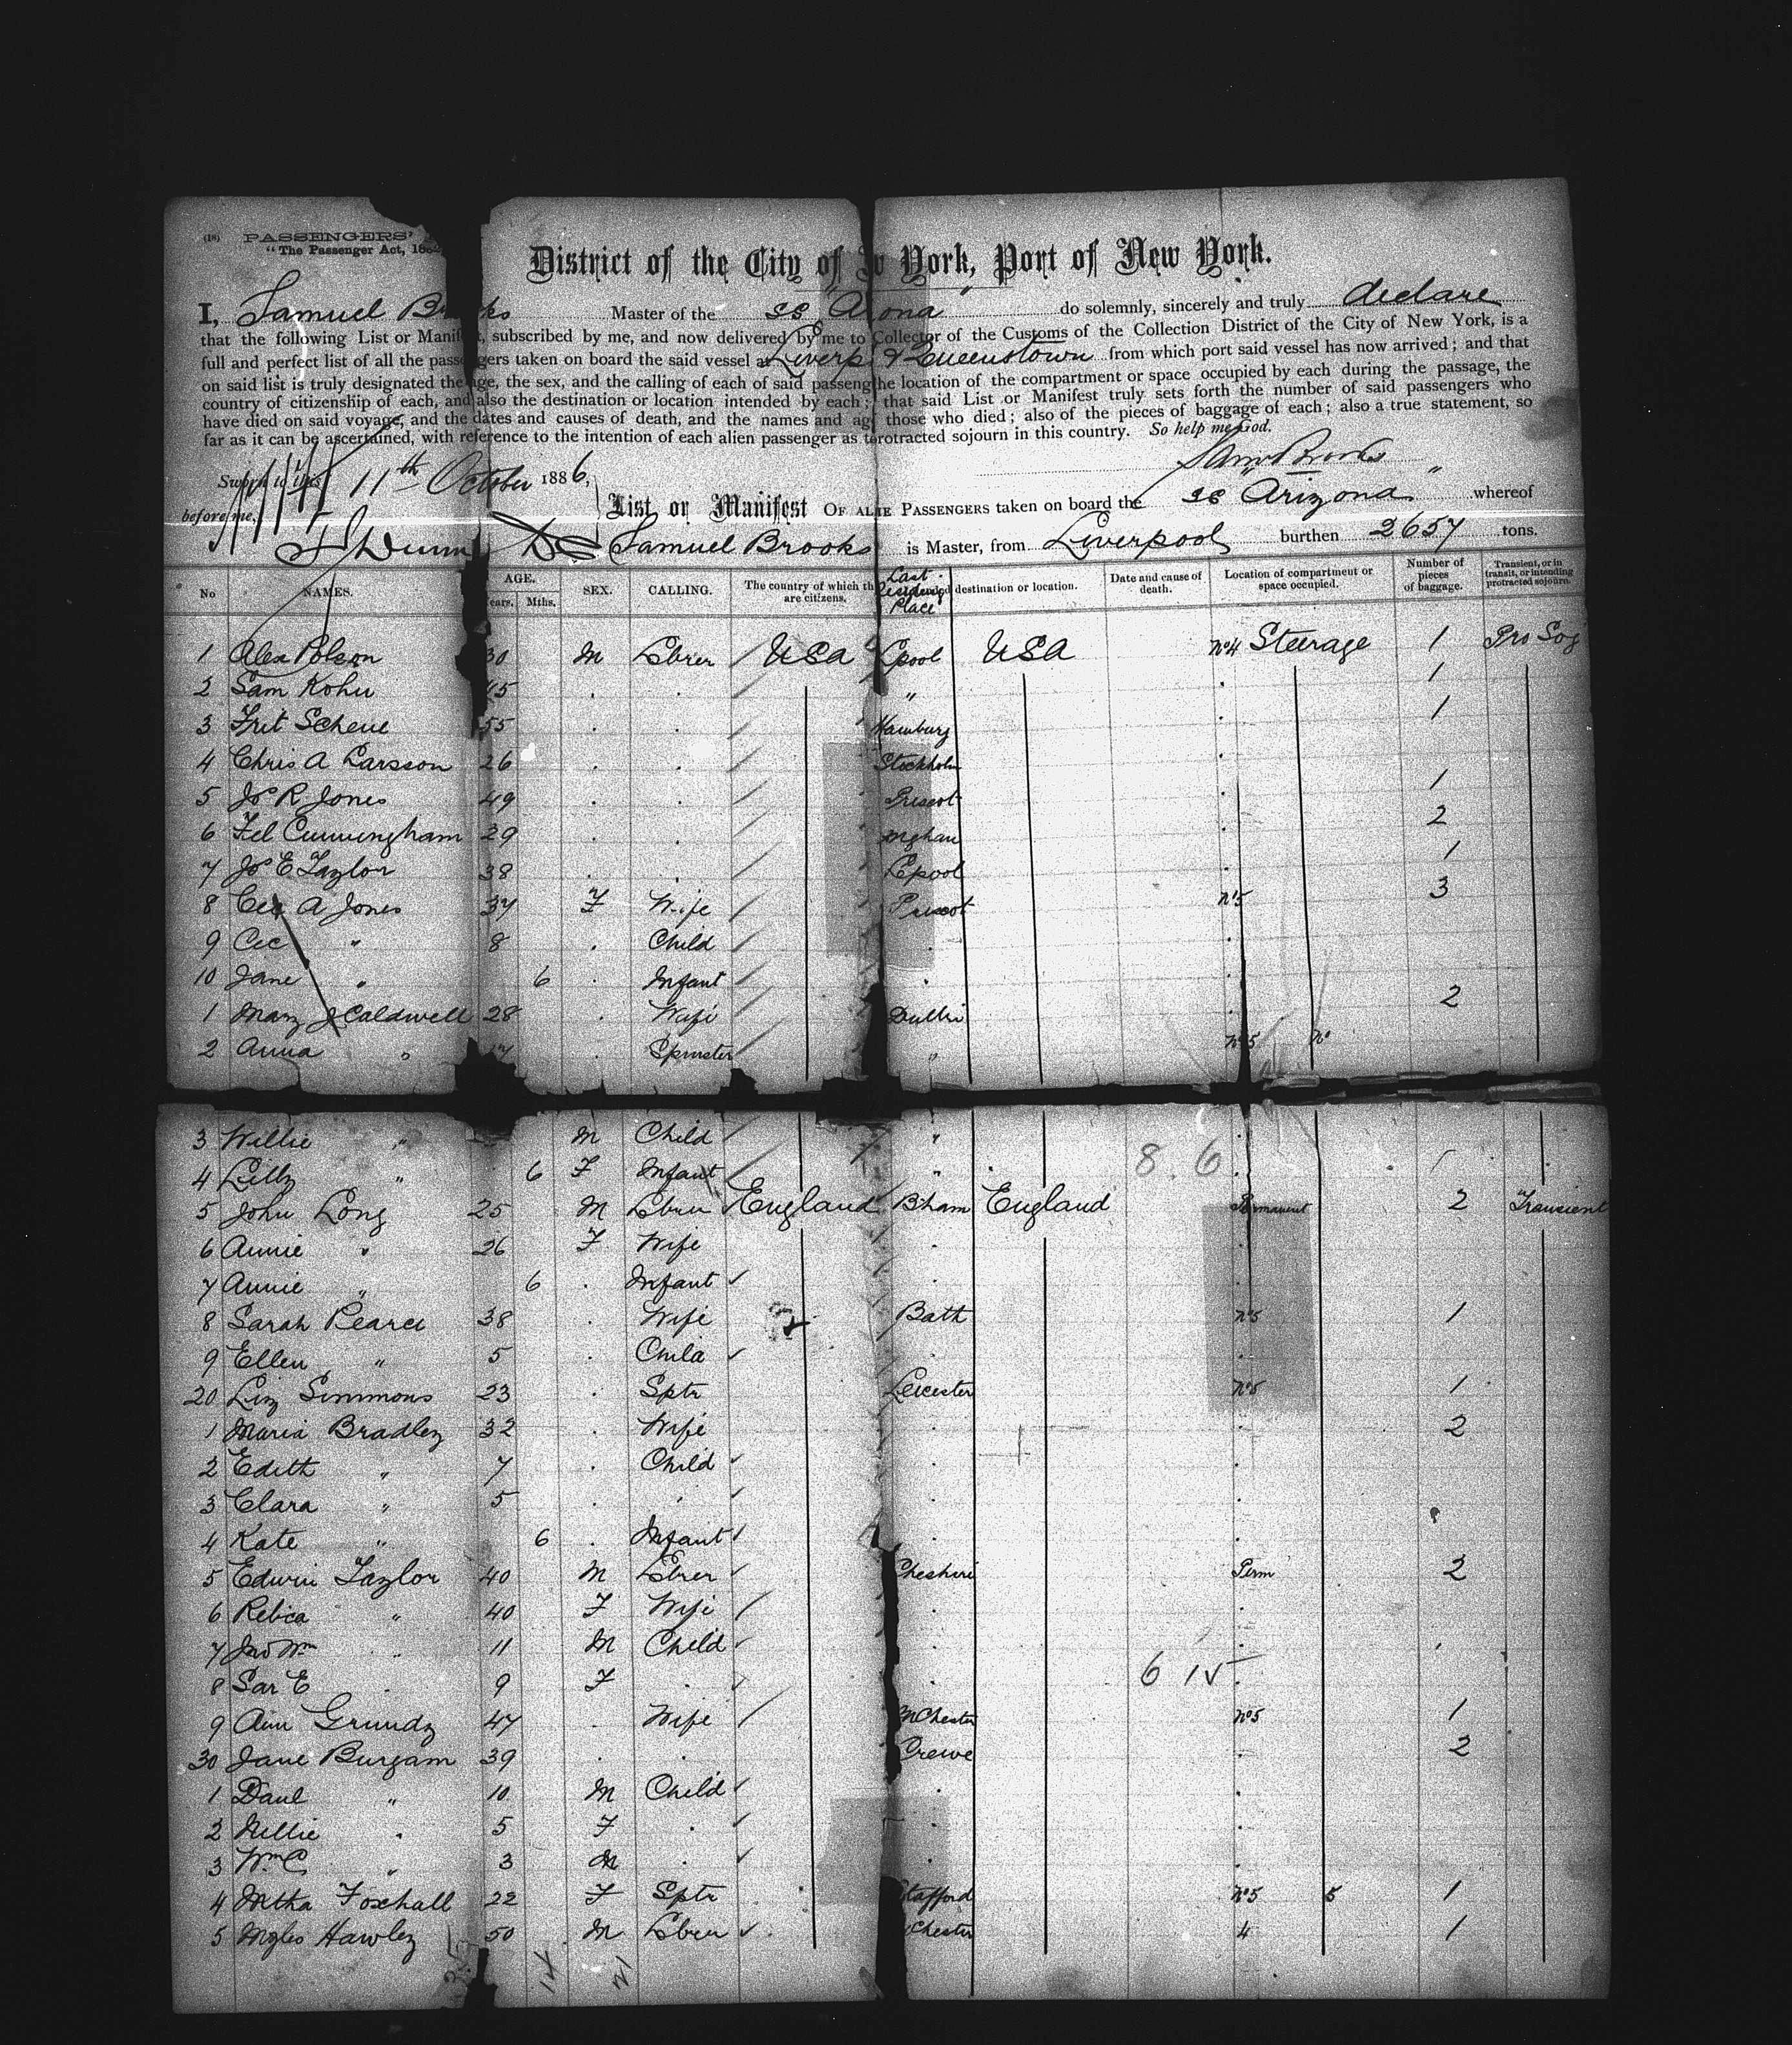 (18) PASSENGERS'
"The Passenger Act, 188
District of the City of York, Port of New York.
I, Samuel Br ks Master of the SS "A ona" do solemnly, sincerely and truly declare
that the following List or Manif t, subscribed by me, and now delivered by me to Collector of the Customs of the Collection District of the City of New York, is a
full and perfect list of all the passe gers taken on board the said vessel a Liverp & Queenstown from which port said vessel has now arrived; and that
on said list is truly designated the age, the sex, and the calling of each of said passeng he location of the compartment or space occupied by each during the passage, the
country of citizenship of each, and also the destination or location intended by each; that said List or Manifest truly sets forth the number of said passengers who
have died on said voyage, and the dates and causes of death, and the names and ag those who died; also of the pieces of baggage of each; also a true statement, so
far as it can be ascertained, with reference to the intention of each alien passenger as to rotracted sojourn in this country. So help me God.
Saml Brooks
Sworn to this 11th October 1886,
before me,
List or Manifest OF ALIE PASSENGERS taken on board the SS "Arizona" whereof
Dunn Samuel Brooks is Master, from Liverpool burthen 2657 tons.
No NAMES. AGE. Years. Mths. SEX. CALLING. The country of which th are citizens. Last Residing Place d destination or location. Date and cause of death. Location of compartment or space occupied. Number of pieces of baggage. Transient, or in transit, or intending protracted sojourn.
1 Alex Polson 30 M Lbrer USA Lpool USA No4 Steerage 1 Pro Soj
2 Sam Kohn 45 . . " . 1
3 Frit Scheue 55 . . Hamburg . 1
4 Chris A Larsson 26 . . Stockholm .
5 Js R Jones 49 . . Prescot . 1
6 Fel Cunningham 29 . . . 2
7 Js E Taylor 38 . . Lpool . 1
8 Cec A Jones 37 F Wife Prescot No5 3
9 Cec " 8 . Child . .
10 Jane " 6 . Infant . .
1 Mary J Caldwell 28 . Wife Dublin . 2
2 Anna " . Spinster " No5 No
3 Willie " M Child " .
4 Lilly " 6 F Infant " . 8 6
5 John Long 25 M Lbrer England B'ham England Permanent 2 Transient
6 Annie " 26 F Wife . .
7 Annie " 6 . Infant . .
8 Sarah Pearce 38 . Wife Bath No5 1
9 Ellen " 5 . Child . .
20 Liz Simmons 23 . Sptr Leicester No5 1
1 Maria Bradley 32 . Wife . . 2
2 Edith " 7 . Child . .
3 Clara " 5 . . . .
4 Kate " 6 . Infant . .
5 Edwin Taylor 40 M Lbrer Cheshire Perm 2
6 Rebica " 40 F Wife . .
7 Jno Wm " 11 M Child . .
8 Sar E . 9 F . . 6 .
9 Ann Grundy 47 . Wife MChester No5 1
30 Jane Burgam 39 . . Crewe . 2
1 Danl " 10 M Child . .
2 Nellie " 5 F . . .
3 Wm C " 3 M . . .
4 Mtha Foxhall 22 F Sptr Stafford No5 5 1
5 Myles Hawley 50 M Lbrer Chester 4 1